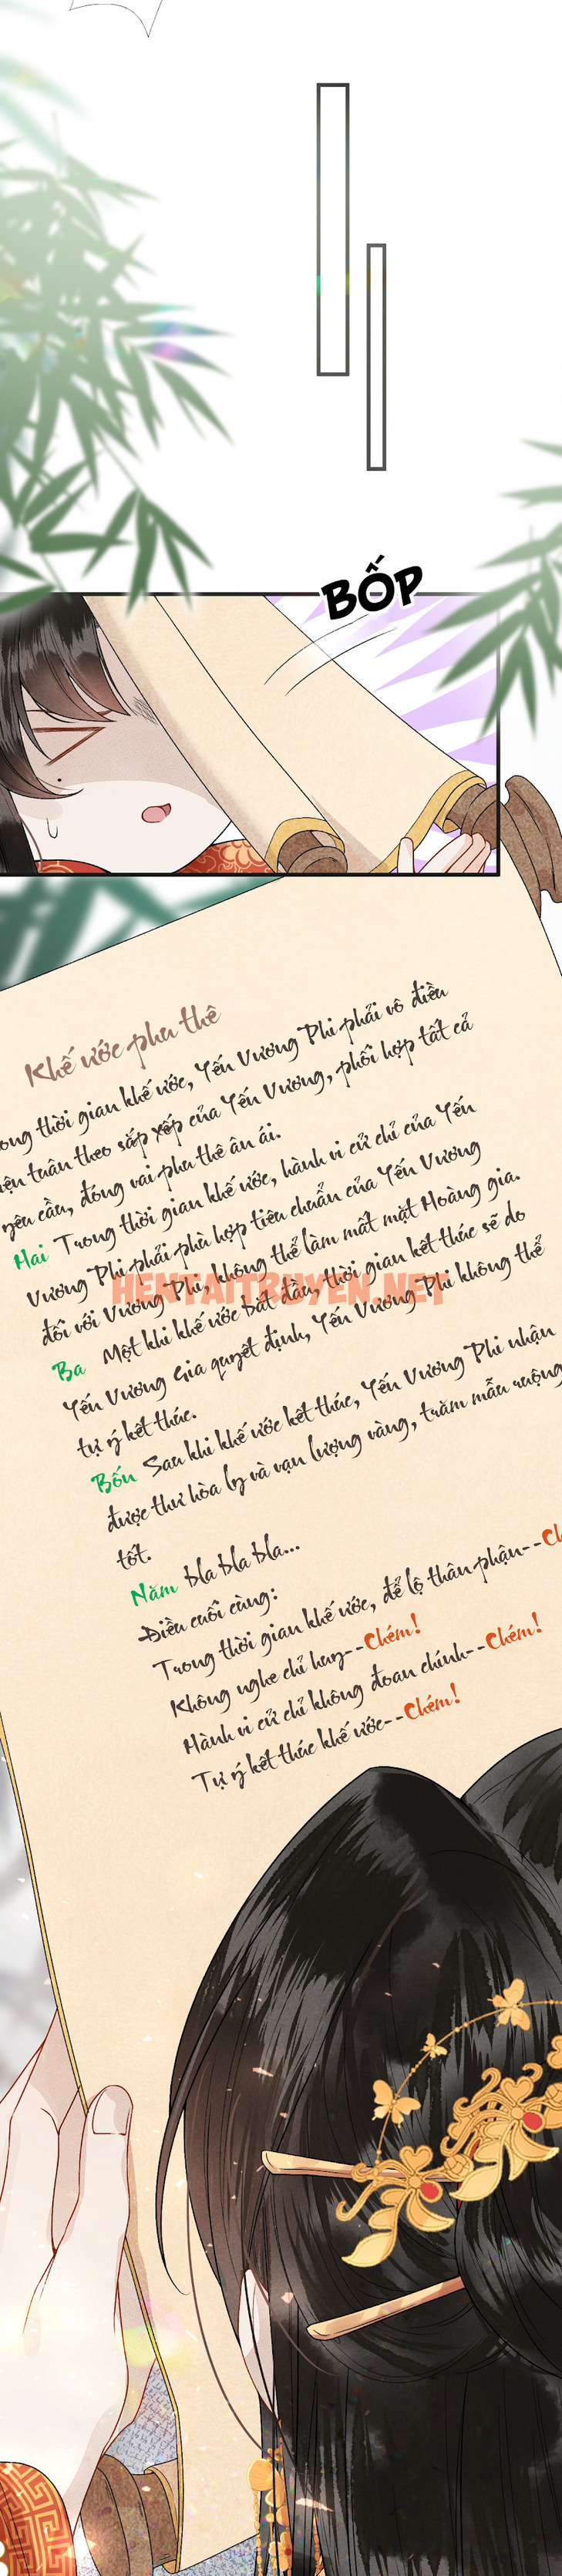 BỐP
Khế ước phu thê
ong thời gian khế ước, Yến Vương Phi phải vô điều
iện tuân theo sắp xếp của Yến Vương, phối hợp tất cả
yêu cầu, đóng vai phu thê ân ái.
Hai Trong thời gian khế ước, hành vi cử chỉ của Yến
Vương Phi phải phù hợp tiêu chuẩn của Yến Vương
đối với Vương Phi, không thể làm mất mặt Hoàng gia.
HENTAITRUYEN.NET
Ba Một khi khế ước bắt đầu, thời gian kết thúc sẽ do
Yến Vương Gia quyết định, Yến Vương Phi không thể
tự ý kết thúc.
Bốn Sau khi khế ước kết thúc, Yến Vương Phi nhận
được thư hòa ly và vạn lượng vàng, trăm mẫu ruộng
tốt.
Năm bla bla bla...
Điều cuối cùng:
Trong thời gian khế ước, để lộ thân phận--Ch
Không nghe chỉ huy--Chém!
Hành vi cử chỉ không đoan chính--Chém!
Tự ý kết thúc khế ước--Chém!